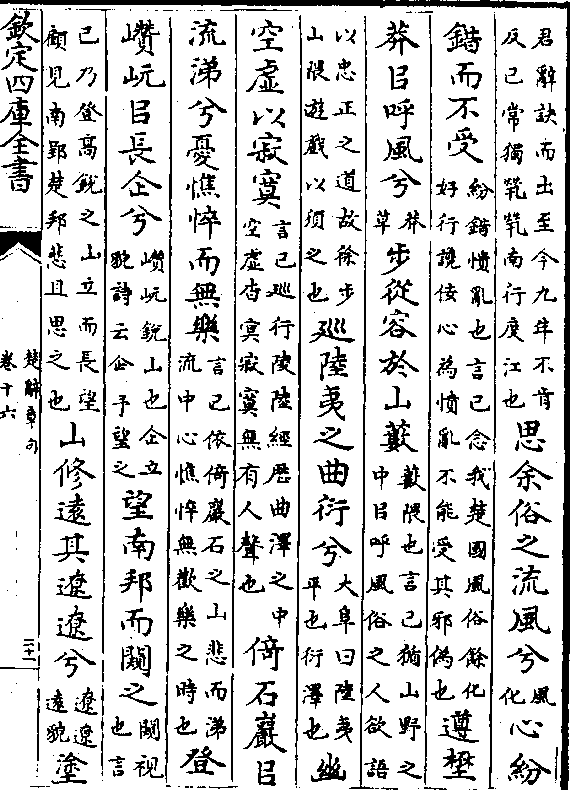 君辭訣而出至今九年不肯反已常獨煢煢南行度江也思余俗之流風兮風化心紛
錯而不受紛錯憒亂也言已念我楚國風俗餘化好行讒佞心為憤亂不能受其邪偽也遵壄
莽㠯呼風兮莽草步從容於山藪藪隈也言已猶山野之中㠯呼風俗之人欲語
以忠正之道故徐步山隈遊戲以須之也巡陸夷之曲衍兮大阜曰陸夷平也衍澤也幽
空虛以寂寞言已巡行陵陸經歷曲澤之中空虛杳冥寂寞無有人聲也倚石巖㠯
流涕兮憂憔悴而無樂言已依倚巖石之山悲而涕流中心憔悴無歡樂之時也登
巑岏㠯長企兮巑岏銳山也企立貌詩云企予望之望南邦而闚之闚視也言
已乃登高銳之山立而長望顧見南郢楚邦悲且思之也山修遠其遼遼兮遼遼遠貌塗
欽定四庫全書
楚辭章句
卷十六
二十一